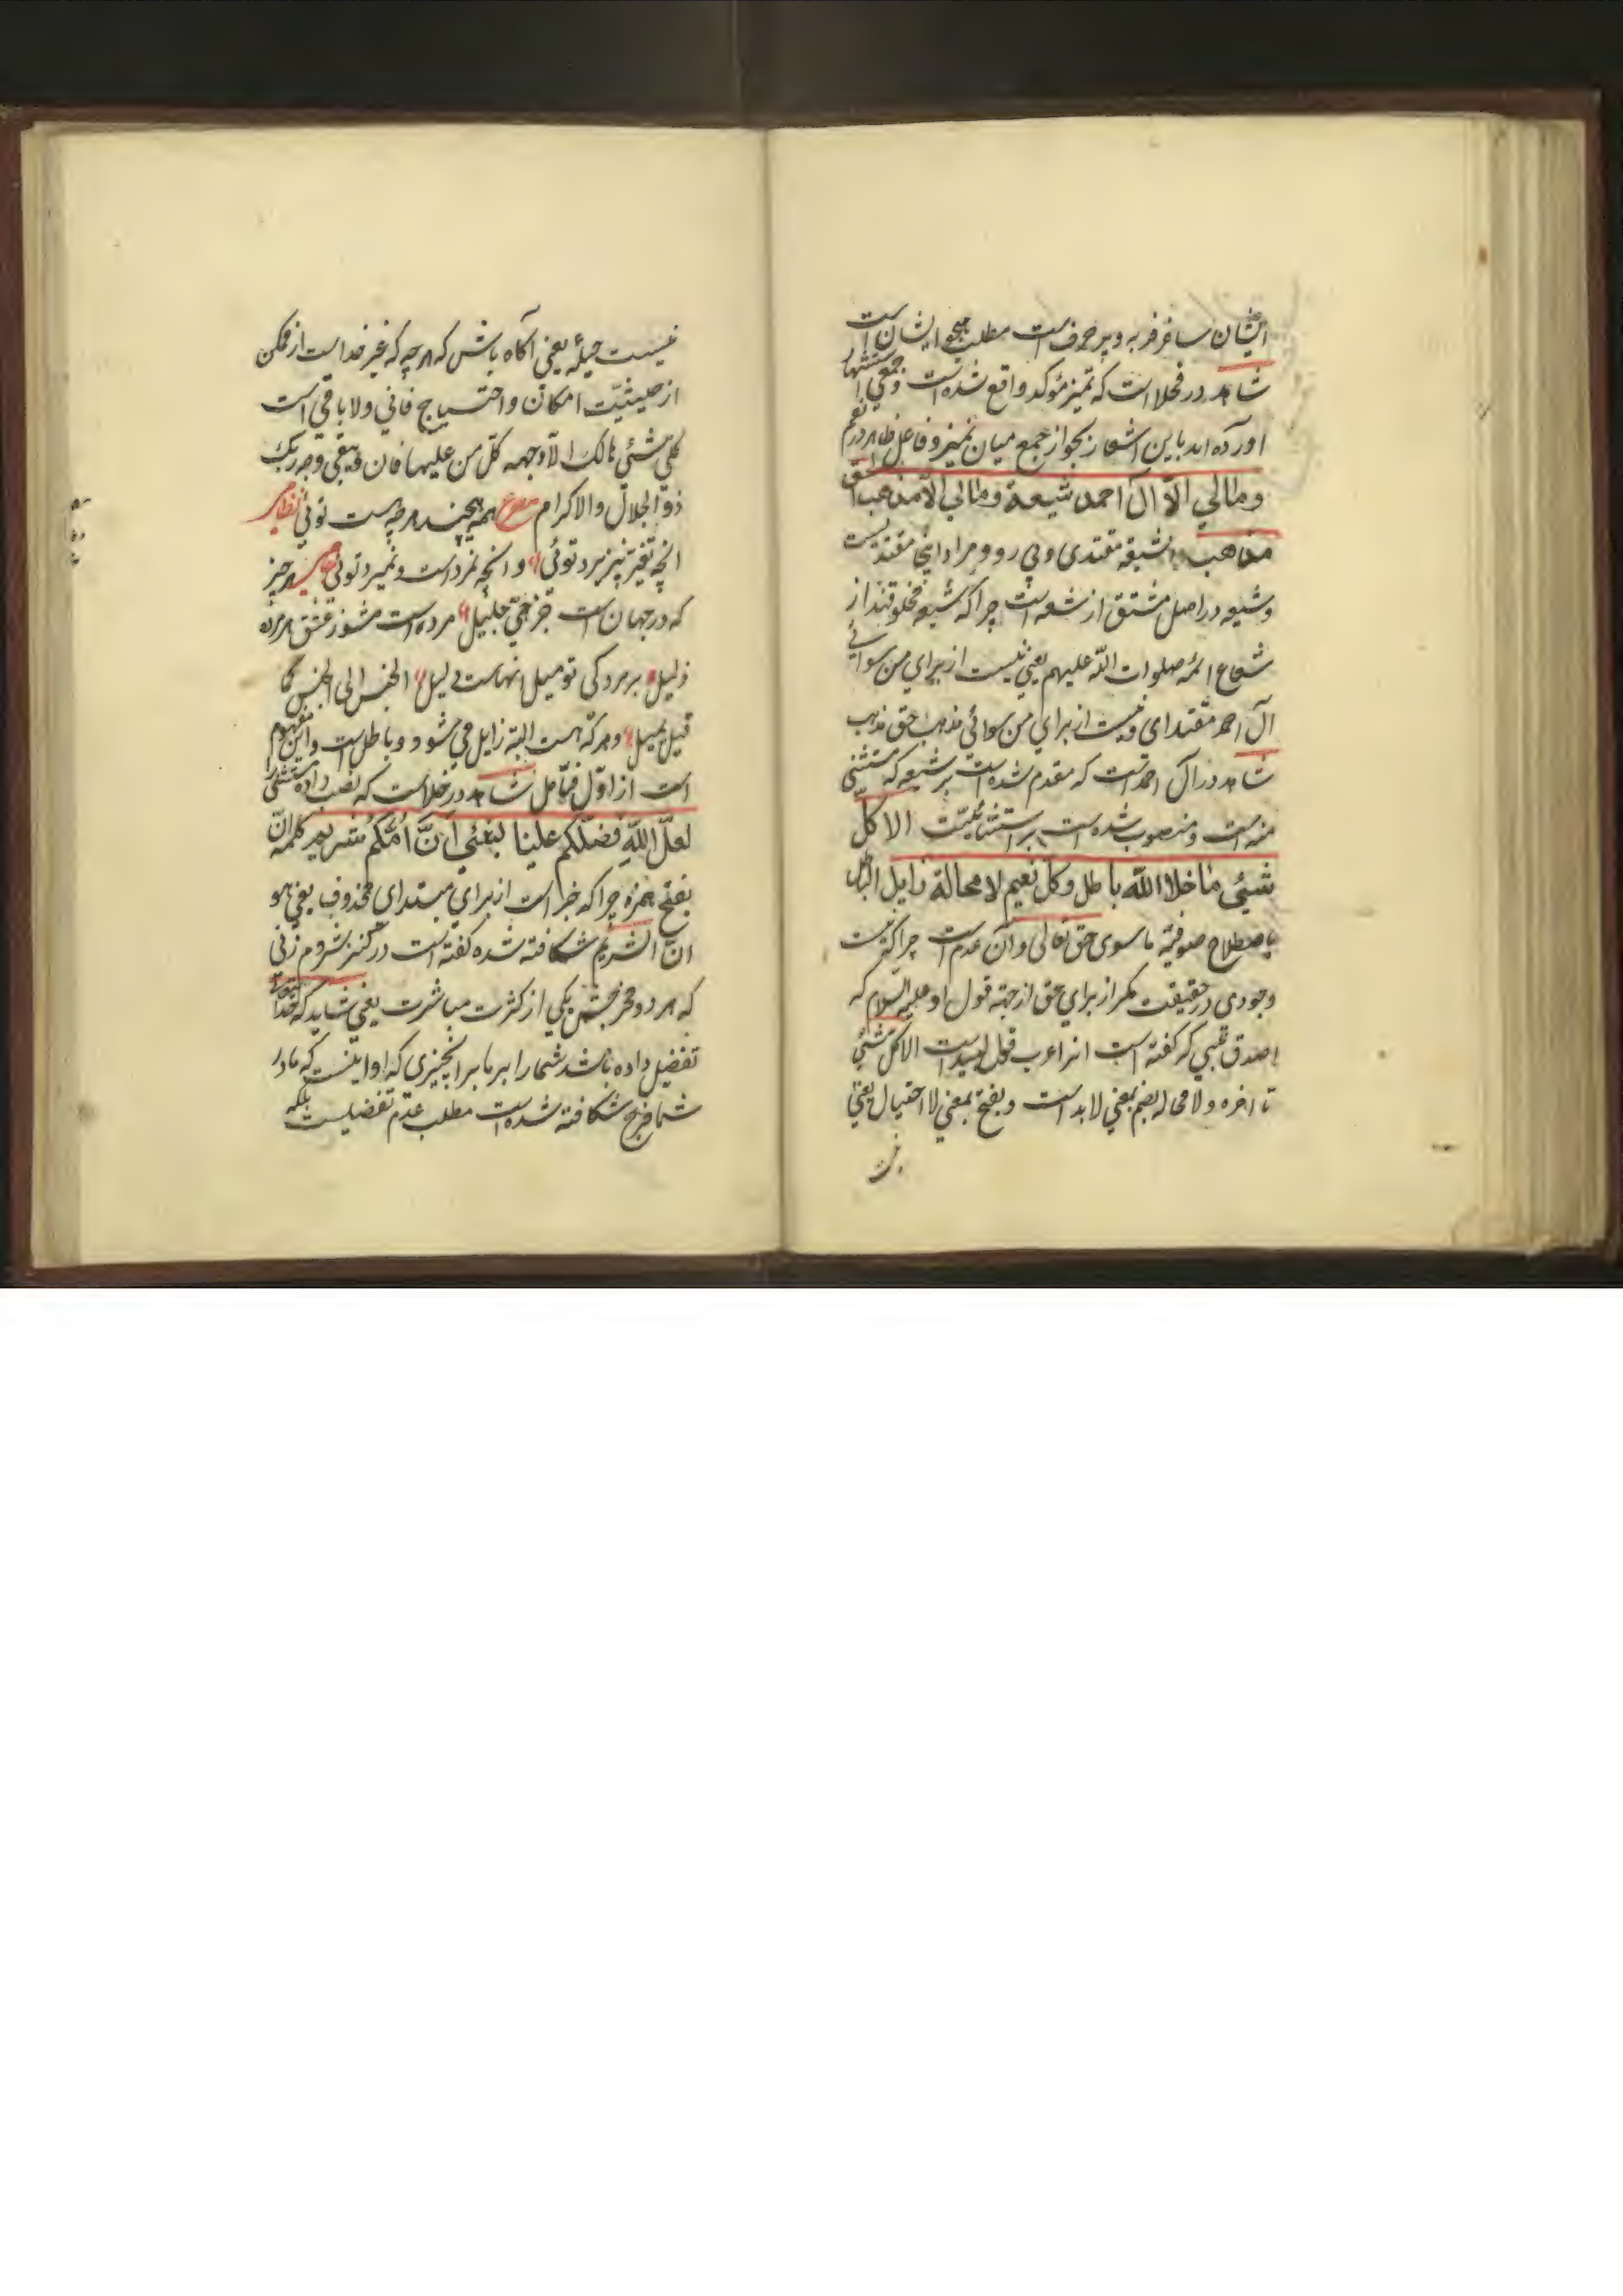 ایشان سافرفربه و پر حرف است مطلب هجو ایشان است
شاهد در فحلا است که تمیز مؤکد واقع شده است و جمعی استشهاد
آورده اند باین اشعار بجواز جمع میان تمیز و فاعل ظاهر در نعم
ومالي الاّ آل احمد شیعة ومالي الا مذهب الحق
مذهب شیعه مقتدی و پی رو و مراد اینجا مقتدیست
و شیعه در اصل مشتق از شعه است چرا که شیعه مخلوقند از
شعاع ائمه صلوات اللّه علیهم یعنی نیست از برای من سوائی
آل احمد مقتدای و نیست از برای من سوائی مذهب حق مذهب
شاهد در آل احمد است که مقدم شده است بر شیعه که مستثنی
منه است و منصوب شده است بر استثنائیت الا کل
شيئي ما خلا اللّه باطل وکل نعیم لا محالة زایل الباطل
باصطلاح صوفیّه ماسوی حق تعالی و آن عدم است چرا که نیست
وجودی در حقیقت مگر از برای حق از جهة قول او علیه السلام که
اصدق که گفته است اند اعرب قول لبید است الا کل شئي
تا اخره و لا محاله بضم بمعنی لابد است و بفتح بمعنی لا احتیال یعنی
نیست حیله یعنی آگاه باش که هر چه که غیر خدا است از ممکن
از حیثیّت امکان و احتیاج فانی و لا باقی است
کل شئي هالك الا وجهه کل من علیها فان و یبقی وجه ربك
ذو الجلال والاکرام مصرع همه هیچند هر چه هست توئی نظامی
انچه تغیر نپذیرد توئی و انچه نمرد است و نمیرد توئی هر چیز
که در جهان است جز حیّ جلیل مرده است مشو ز عشق هر مرده
ذلیل بر مرد کی تو میل انهاست دلیل الجنس الی الجنس کما
قیل یمیل و هر که هست البته زایل می شود و باطل است و این مفهوم
است از اوّل فتأمل شاهد در خلا است که نصب داده مستثنی را
لعلّ اللّهِ فضّلکم علینا بشئي اَنَّ اُمَّکُم شریم کلمه انّ
بفتح همزه چرا که خبر است از برای مبتدای محذوف یعنی هو
انّ الشریم شکافته شده گفته است در کنز شروم زنی
که هر دو مخرجش یکی از کثرت مباشرت یعنی شاید که خدا
تفضیل داده باشد شما را بر ما بر انچیزی که او اینست که مادر
شما فرج شکافته شده است مطلب عدم تفضیلست بلکه